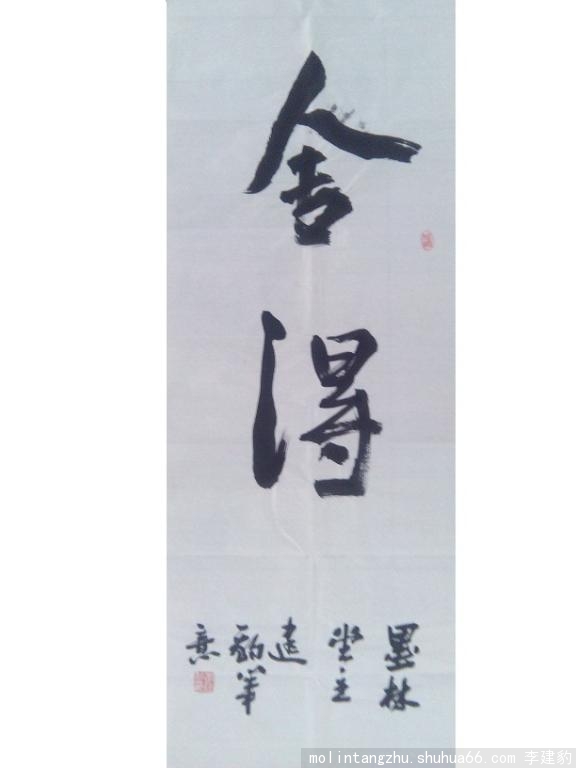 舍得
墨林
堂主
建
豹筆
意
molintangzhu.shuhua66.com 李建豹